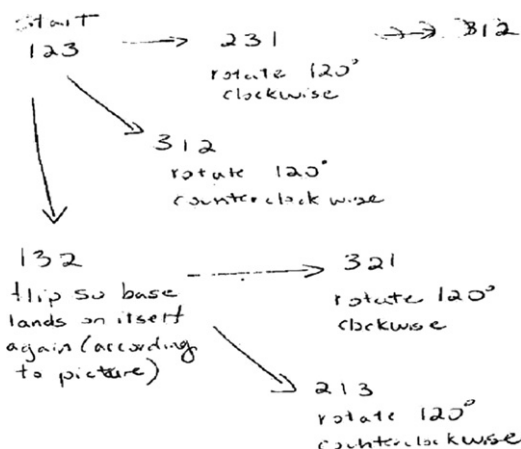 start
123
231
312
rotate 120°
clockwise
312
rotate 120°
counterclockwise
132
flip so base
lands on itself
again (according
to picture)
321
rotate 120°
clockwise
213
rotate 120°
counterclockwise